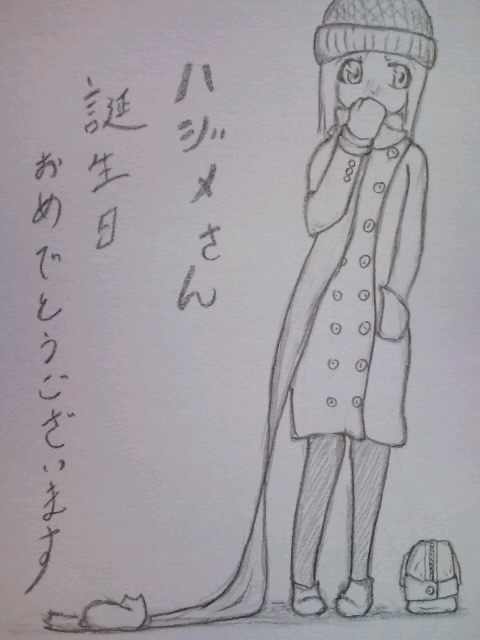 ハジメさん
誕生日
おめでとうございます